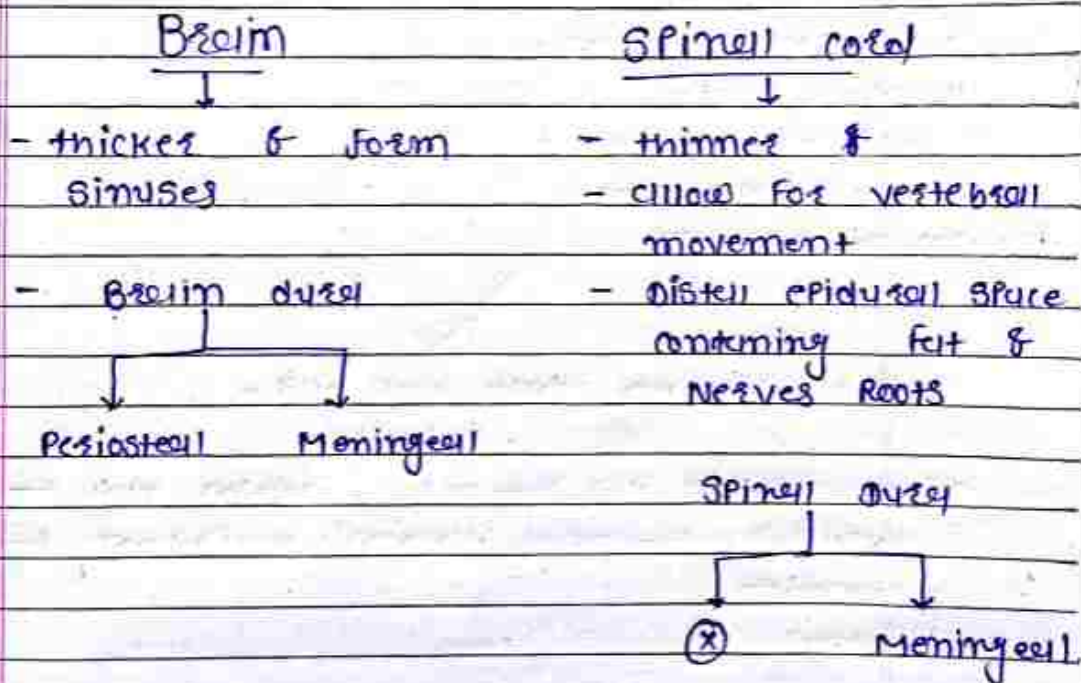 Brain
- thicker & form
sinuses
- Brain dura
Periosteal Meningeal
Spinal cord
- thinner &
- allow For vertebral
movement
- Distal epidural space
containing fat &
Nerves Roots
Spinal Dura
ⓧ Meningeal